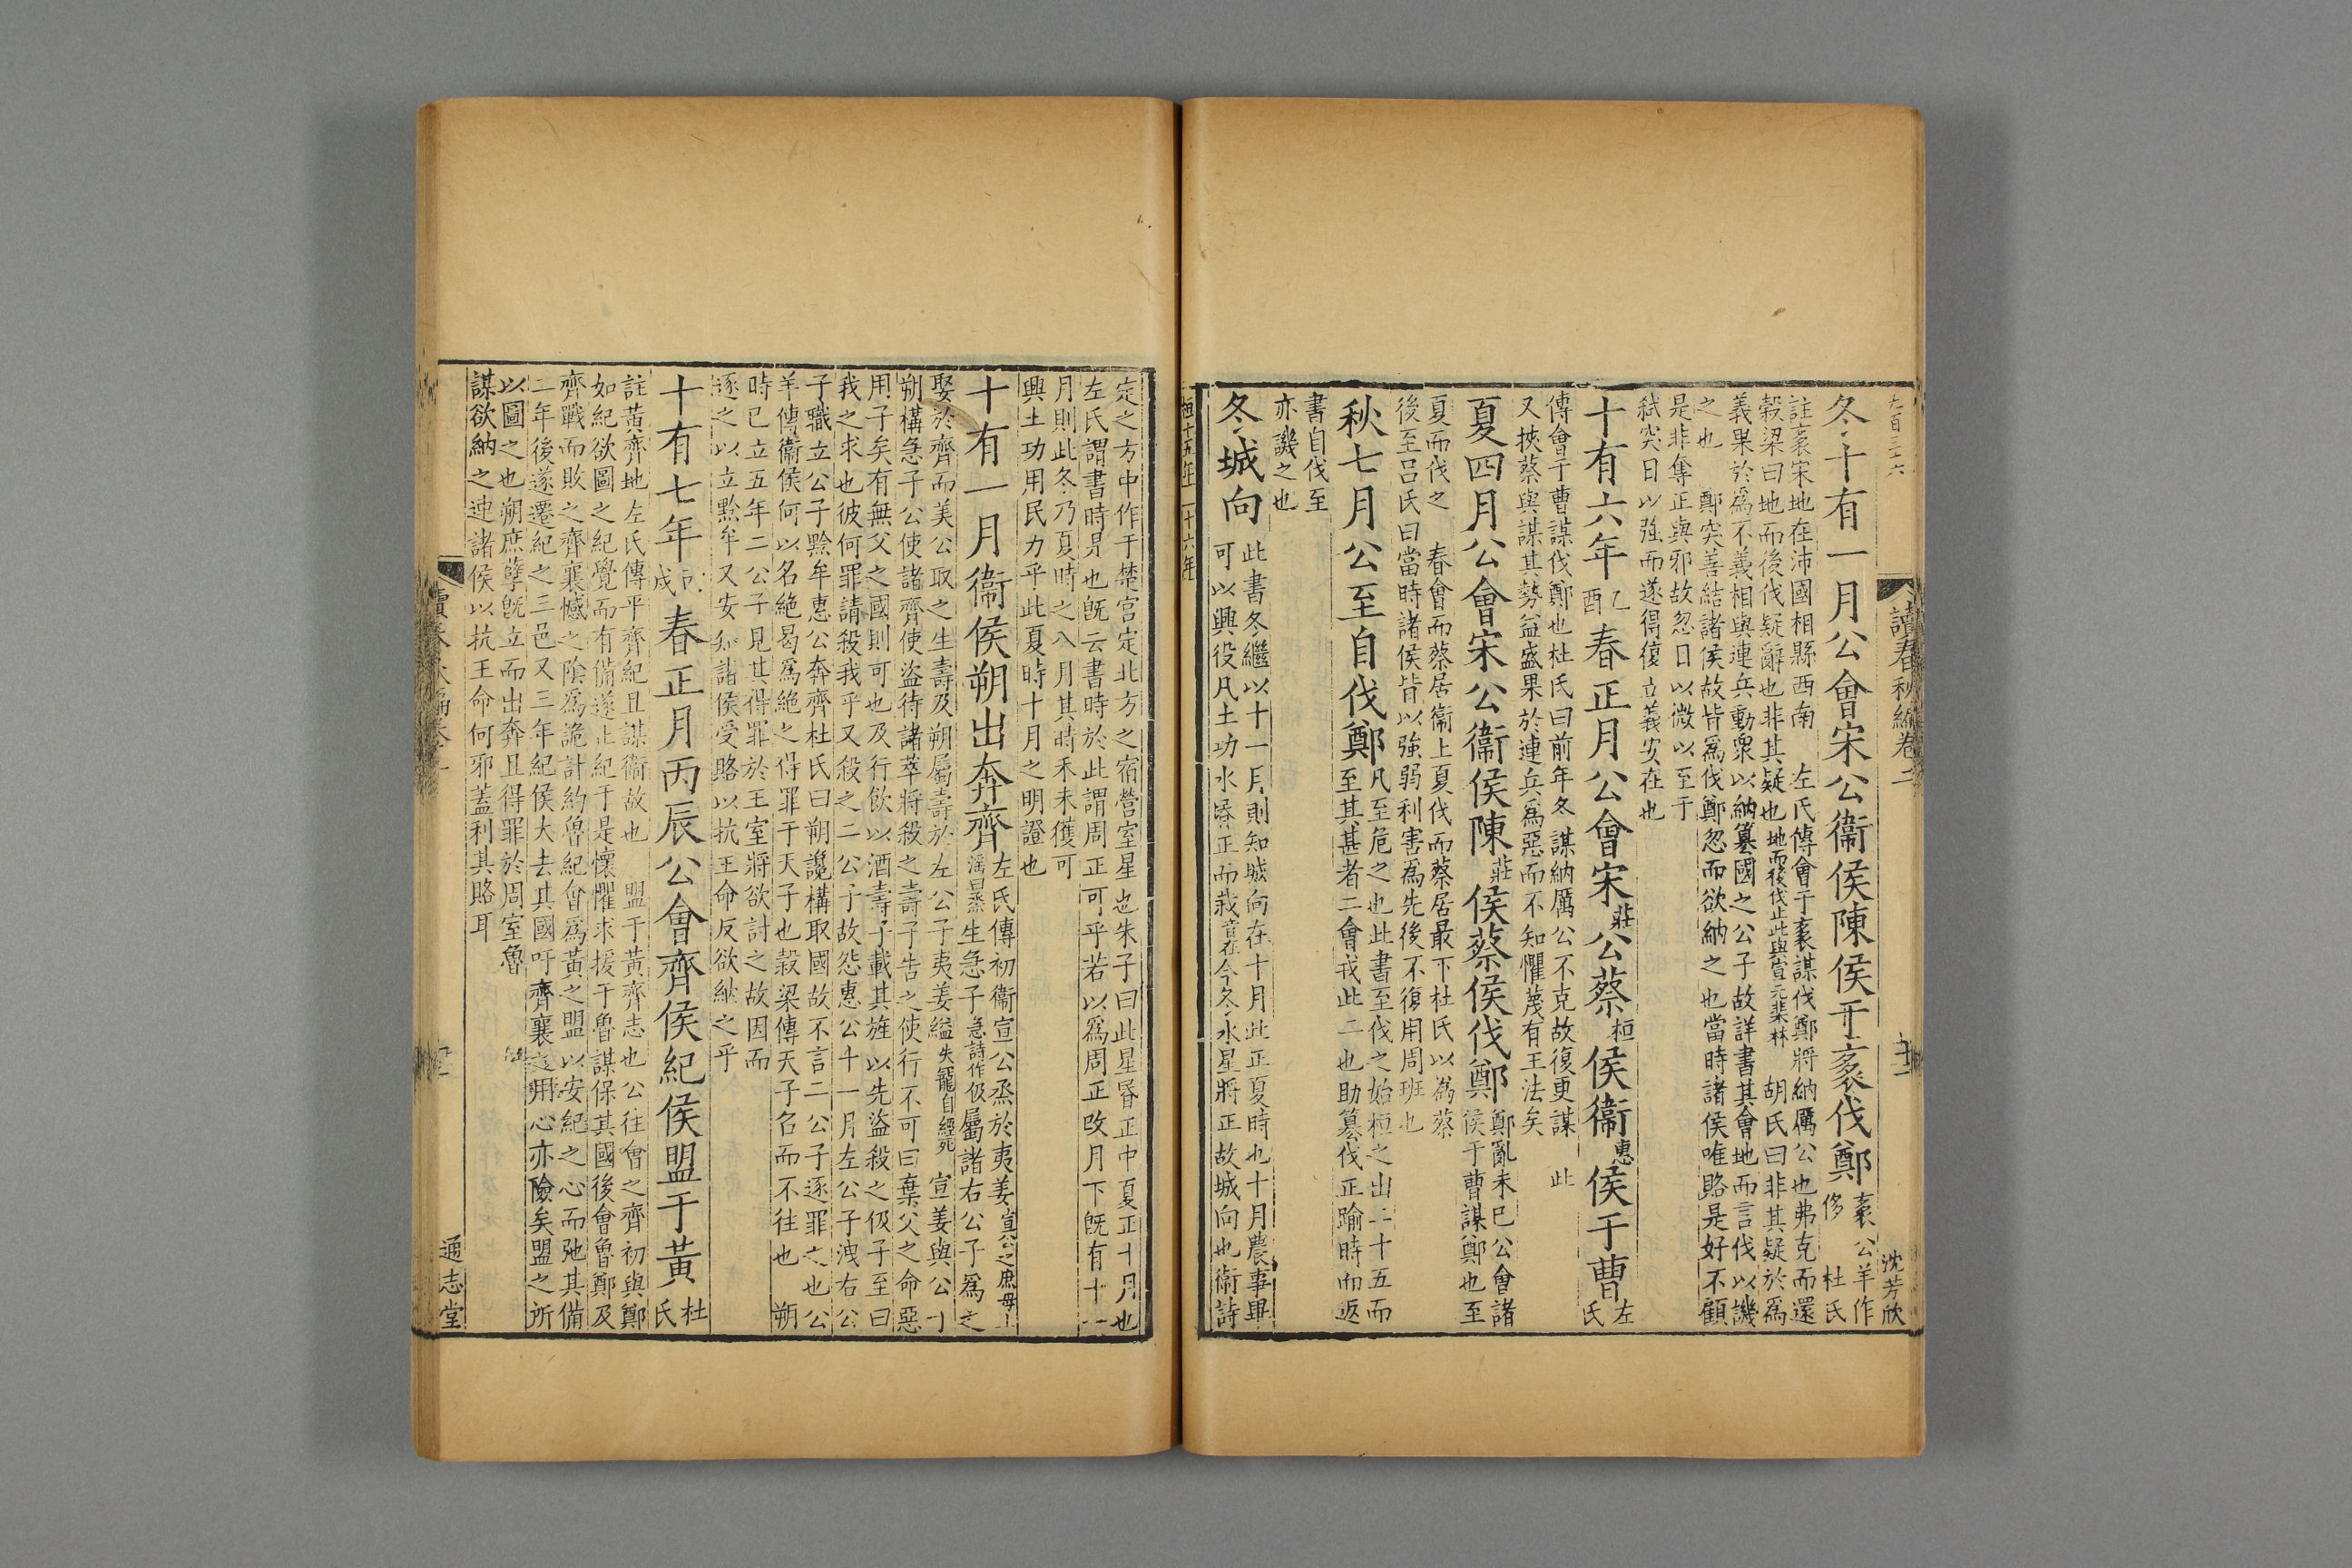 冬十有一月公會宋公衞侯陳侯于袲伐鄭袲公羊作侈杜氏
註袲宋地在沛國相縣西南 左氏傳會于袲謀伐鄭將納厲公也弗克而還
穀梁曰地而後伐疑辭也非其疑也地而後伐止此與宣元棐林 胡氏曰非其疑於爲
義果於爲不義相與連兵動衆以納簒國之公子故詳書其會地而言伐以譏
之也 鄭突善結諸侯故皆爲伐鄭忽而欲納之也當時諸侯唯賂是好不顧
是非奪正與邪故忽日以微以至于
弑突日以強而遂得復立義安在也
十有六年乙酉春正月公會宋莊公蔡桓侯衞惠侯于曹左氏
傳會于曹謀伐鄭也杜氏曰前年冬謀納厲公不克故復更謀 此
又挾蔡與謀其勢益盛果於連兵爲惡而不知懼蔑有王法矣
夏四月公會宋公衞侯陳莊侯蔡侯伐鄭鄭亂未已公會諸侯于曹謀鄭也至
夏而伐之 春會而蔡居衞上夏伐而蔡居最下杜氏以爲蔡
後至呂氏曰當時諸侯皆以強弱利害爲先後不復用周班也
秋七月公至自伐鄭凡至危之也此書至伐之始桓之出二十五而至其甚者二會戎此二也助簒伐正踰時而返
書自伐至
亦譏之也
冬城向此書冬繼以十一月則知城向在十月此正夏時也十月農事畢可以興役凡土功水昏正而栽音在今冬水星將正故城向也衞詩
桓十五年 十六年
定之方中作于楚宮定北方之宿營室星也朱子曰此星昏正中夏正十月也
左氏謂書時是也旣云書時於此謂周正可乎若以爲周正改月下旣有十一
月則此冬乃夏時之八月其時禾未穫可
興土功用民力乎此夏時十月之明證也
十有一月衞侯朔出奔齊左氏傳初衞宣公烝於夷姜宣公之庶母上淫曰烝生急子急詩作伋屬諸右公子爲之
娶於齊而美公取之生壽及朔屬壽於左公子夷姜縊失寵自經死 宣姜與公子
朔構急子公使諸齊使盜待諸莘將殺之壽子告之使行不可曰棄父之命惡
用子矣有無父之國則可也及行飮以酒壽子載其旌以先盜殺之伋子至曰
我之求也彼何罪請殺我乎又殺之二公子故怨惠公十一月左公子洩右公
子職立公子黔牟惠公奔齊杜氏曰朔讒構取國故不言二公子逐罪之也公
羊傳衞侯何以名絕曷爲絕之得罪于天子也穀梁傳天子召而不往也 朔
時已立五年二公子見其得罪於王室將欲討之故因而
逐之以立黔牟又安知諸侯受賂以抗王命反欲納之乎
十有七年丙戌春正月丙辰公會齊侯紀侯盟于黃杜氏
註黃齊地左氏傳平齊紀且謀衞故也 盟于黃齊志也公往會之齊初與鄭
如紀欲圖之紀覺而有備遂止紀于是懷懼求援于魯謀保其國後會魯鄭及
齊戰而敗之齊襄憾之陰爲詭計約魯紀會爲黃之盟以安紀之心而弛其備
二年後遂遷紀之三邑又三年紀侯大去其國吁齊襄之用心亦險矣盟之所
以圖之也朔庶孽旣立而出奔且得罪於周室魯
謀欲納之連諸侯以抗王命何邪蓋利其賂耳
通志堂